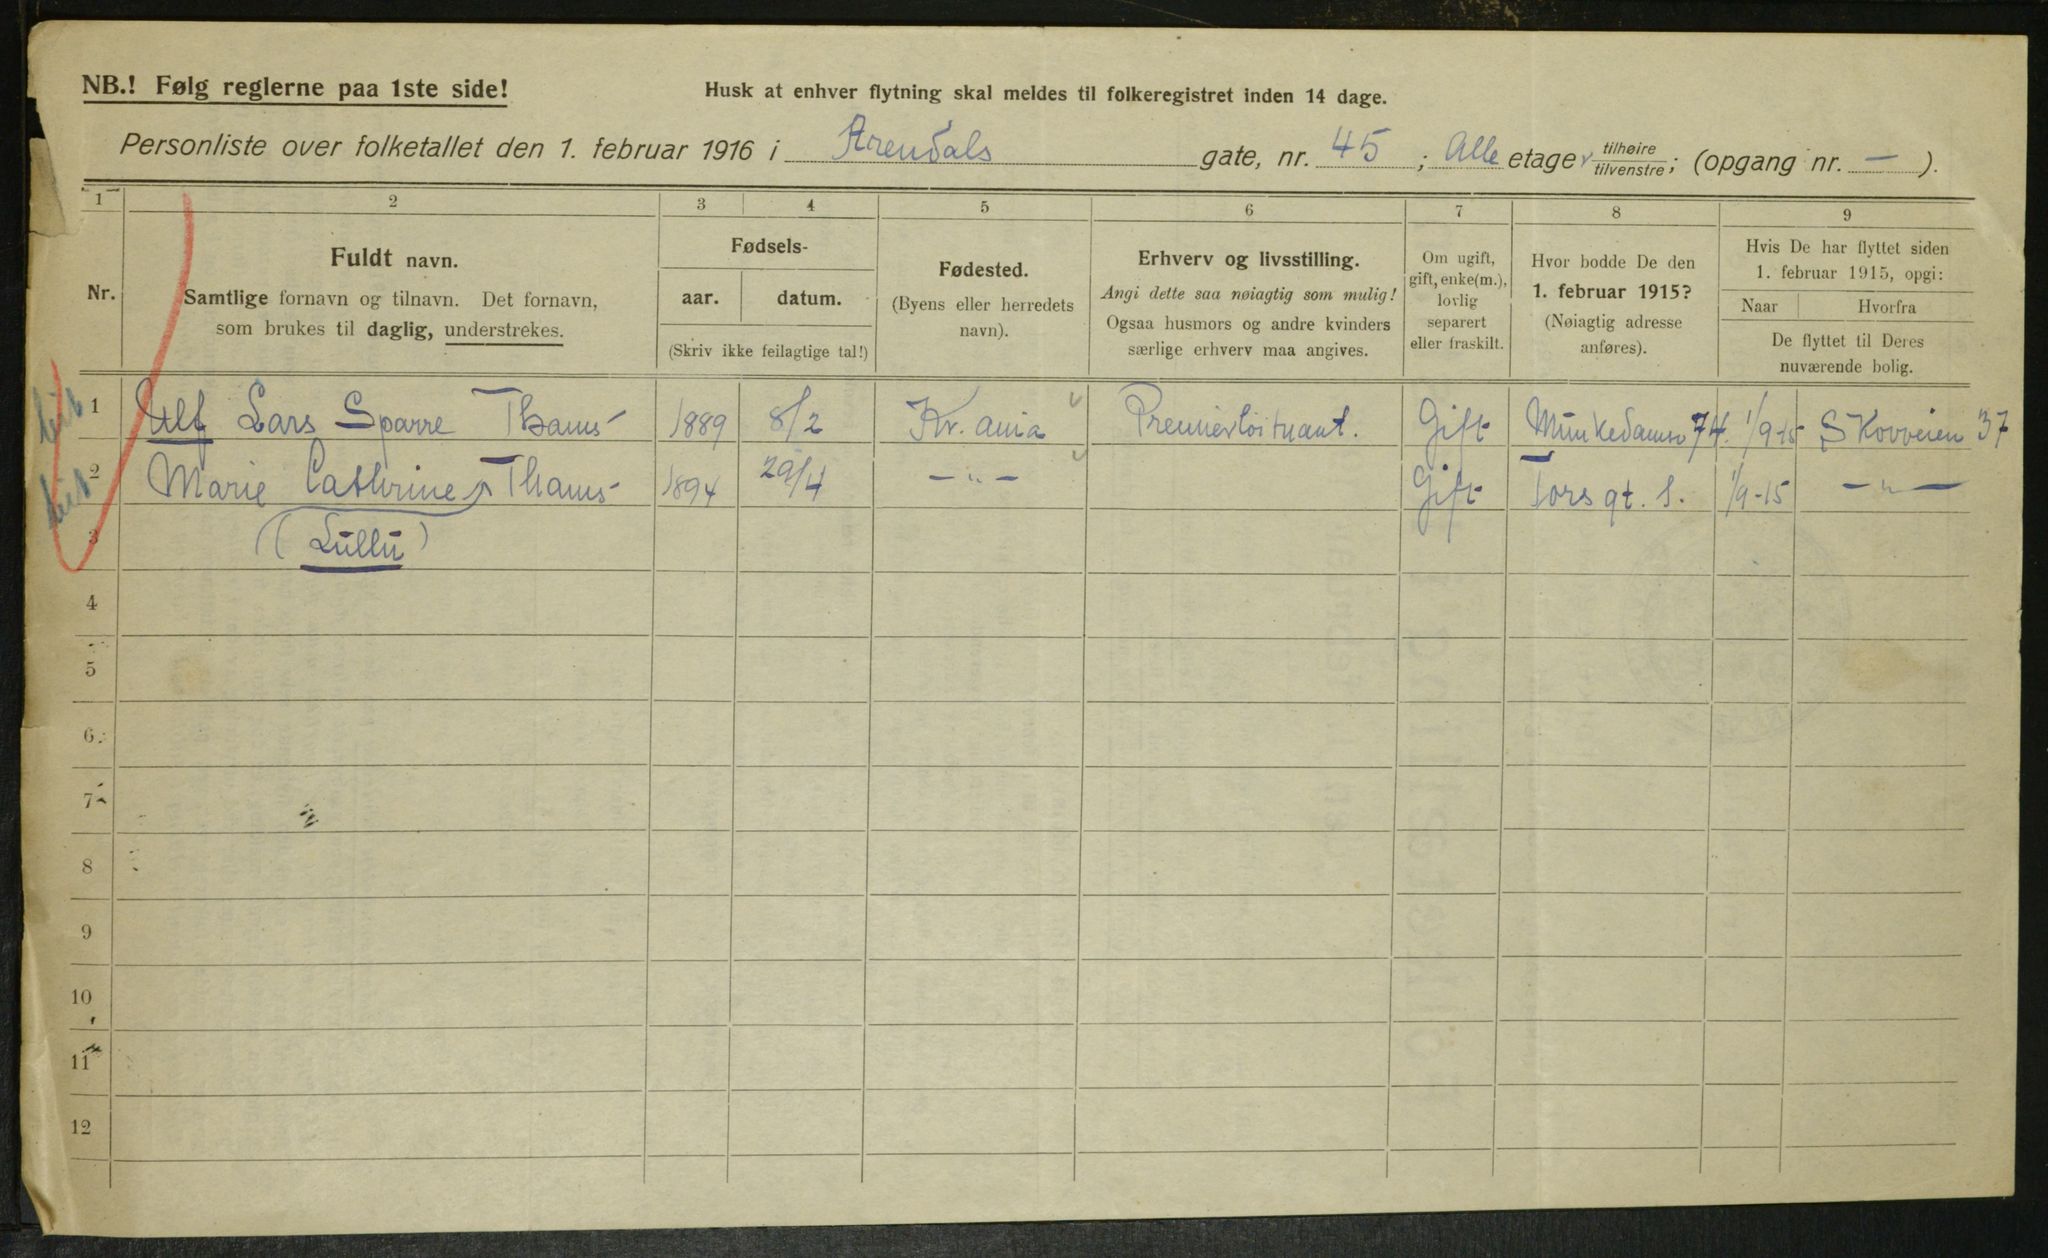 NB.! Følg reglerne paa 1ste side!
Husk at enhver flytning skal meldes til folkeregistret inden 14 dage.
Personliste over folketallet den 1. februar 1916 i Arendals gate, nr. 45; Alle etage tilhøire/tilvenstre; (opgang nr. — ).
1 2 3 4 5 6 7 8 9
Nr.
Fuldt navn.
Samtlige fornavn og tilnavn. Det fornavn,
som brukes til daglig, understrekes.
Fødsels-
aar. datum.
(Skriv ikke feilagtige tal!)
Fødested.
(Byens eller herredets
navn).
Erhverv og livsstilling.
Angi dette saa nøiagtig som mulig!
Ogsaa husmors og andre kvinders
særlige erhverv maa angives.
Om ugift,
gift, enke(m.),
lovlig
separert
eller fraskilt.
Hvor bodde De den
1. februar 1915?
(Nøiagtig adresse
anføres).
Hvis De har flyttet siden
1. februar 1915, opgi:
Naar Hvorfra
De flyttet til Deres
nuværende bolig.
1 Ulf Lars Sparre Thams 1889 8/2 Kr.ania Premierløitnant. Gift Munkedamsv 74. 1/9-15 Skovveien 37
2 Marie Cathrine Thams 1894 29/4 —"— Gift Tors gt. 1. 1/9-15 —"—
3 (Lullu)
4
5
6
7
8
9
10
11
12